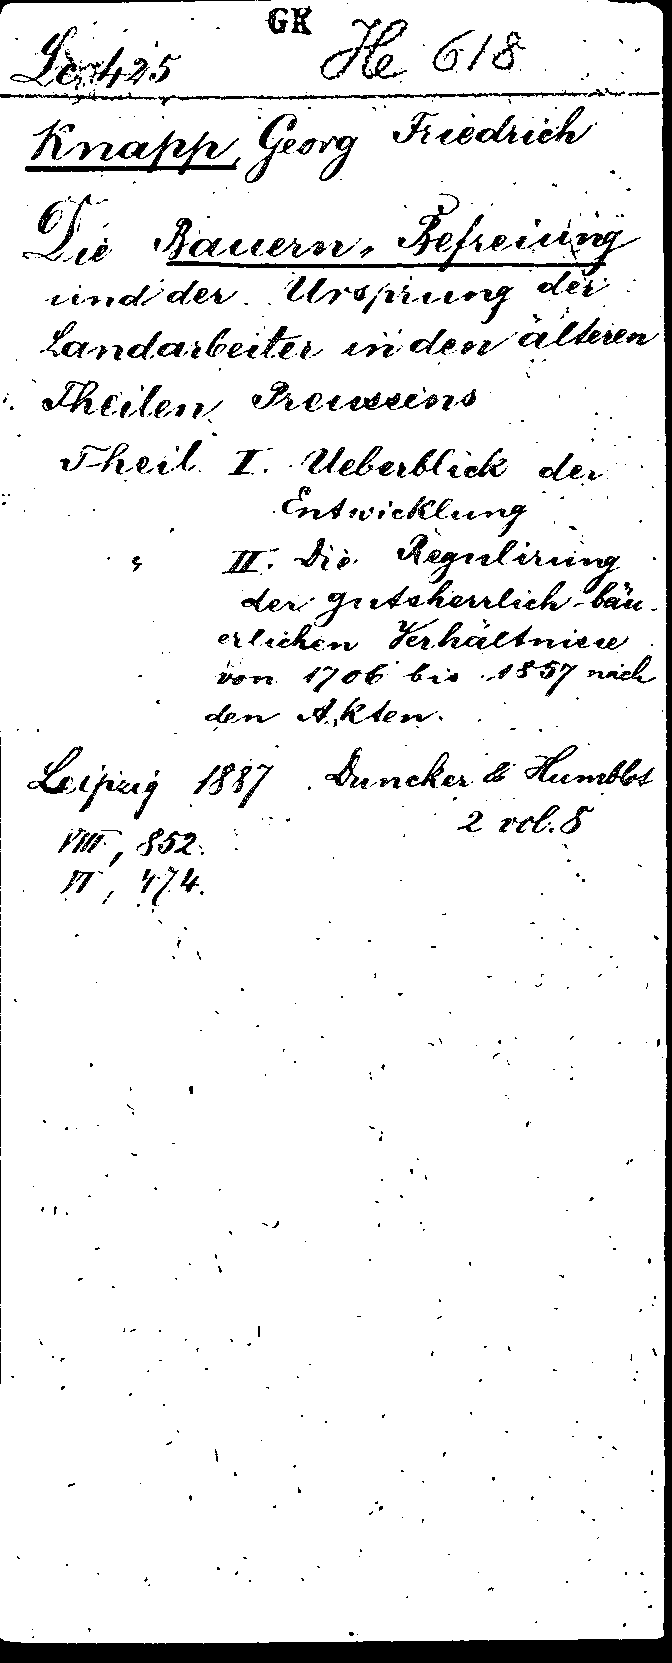 GK
Le 425 He 618
Knapp, Georg Friedrich
Die Bauern-Befreiung
und der Ursprung der
Landarbeiter in den älteren
Theilen Preussens
Theil I. Ueberblick der
Entwicklung
" II. Die Regulirung
der gutsherrlich-bäu-
erlichen Verhältnisse
von 1706 bis 1857 nach
den Akten.
Leipzig 1887 Duncker & Humblot
2 vol. 8
VIII, 352.
VI, 474.